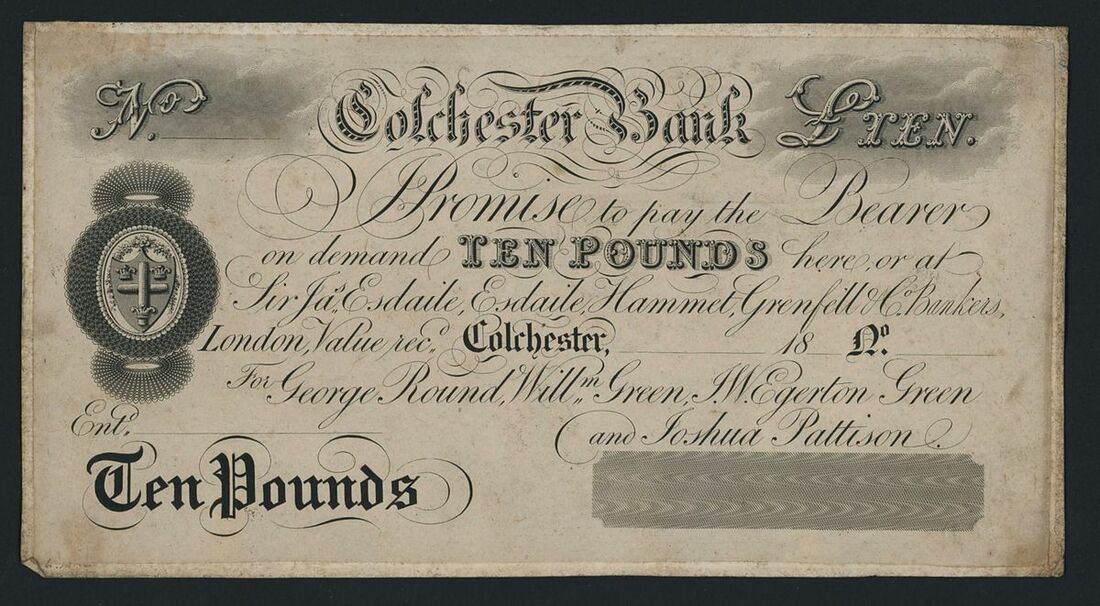 No. Colchester Bank £ TEN.
I Promise to pay the Bearer
on demand TEN POUNDS here, or at
Sir Jas. Esdaile, Esdaile, Hammet, Grenfell & Co. Bankers,
London, Value recd. Colchester, 18 No.
For George Round, Willm. Green, J.W. Egerton Green
Entd. and Joshua Pattison.
Ten Pounds